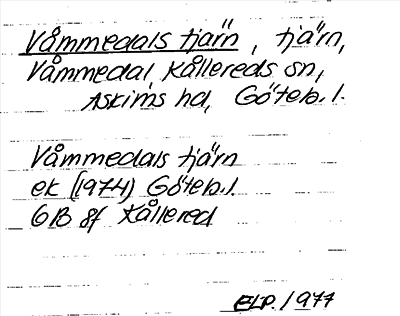 Våmmedals tjärn, tjärn,
Våmmedal, Kållereds sn,
Askims hd, Göteb. l.
Våmmedals tjärn
ek (1974) Göteb. l.
GB 8f Kållered
ELP. 1977